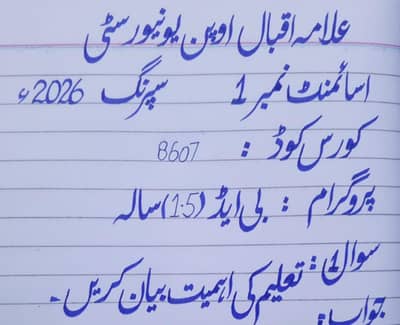 علامہ اقبال اوپن یونیورسٹی
اسائمنٹ نمبر 1 سپرنگ 2026ء
کورس کوڈ : 8607
پروگرام : بی ایڈ (1.5) سالہ
سوال 1: تعلیم کی اہمیت بیان کریں۔
جواب: